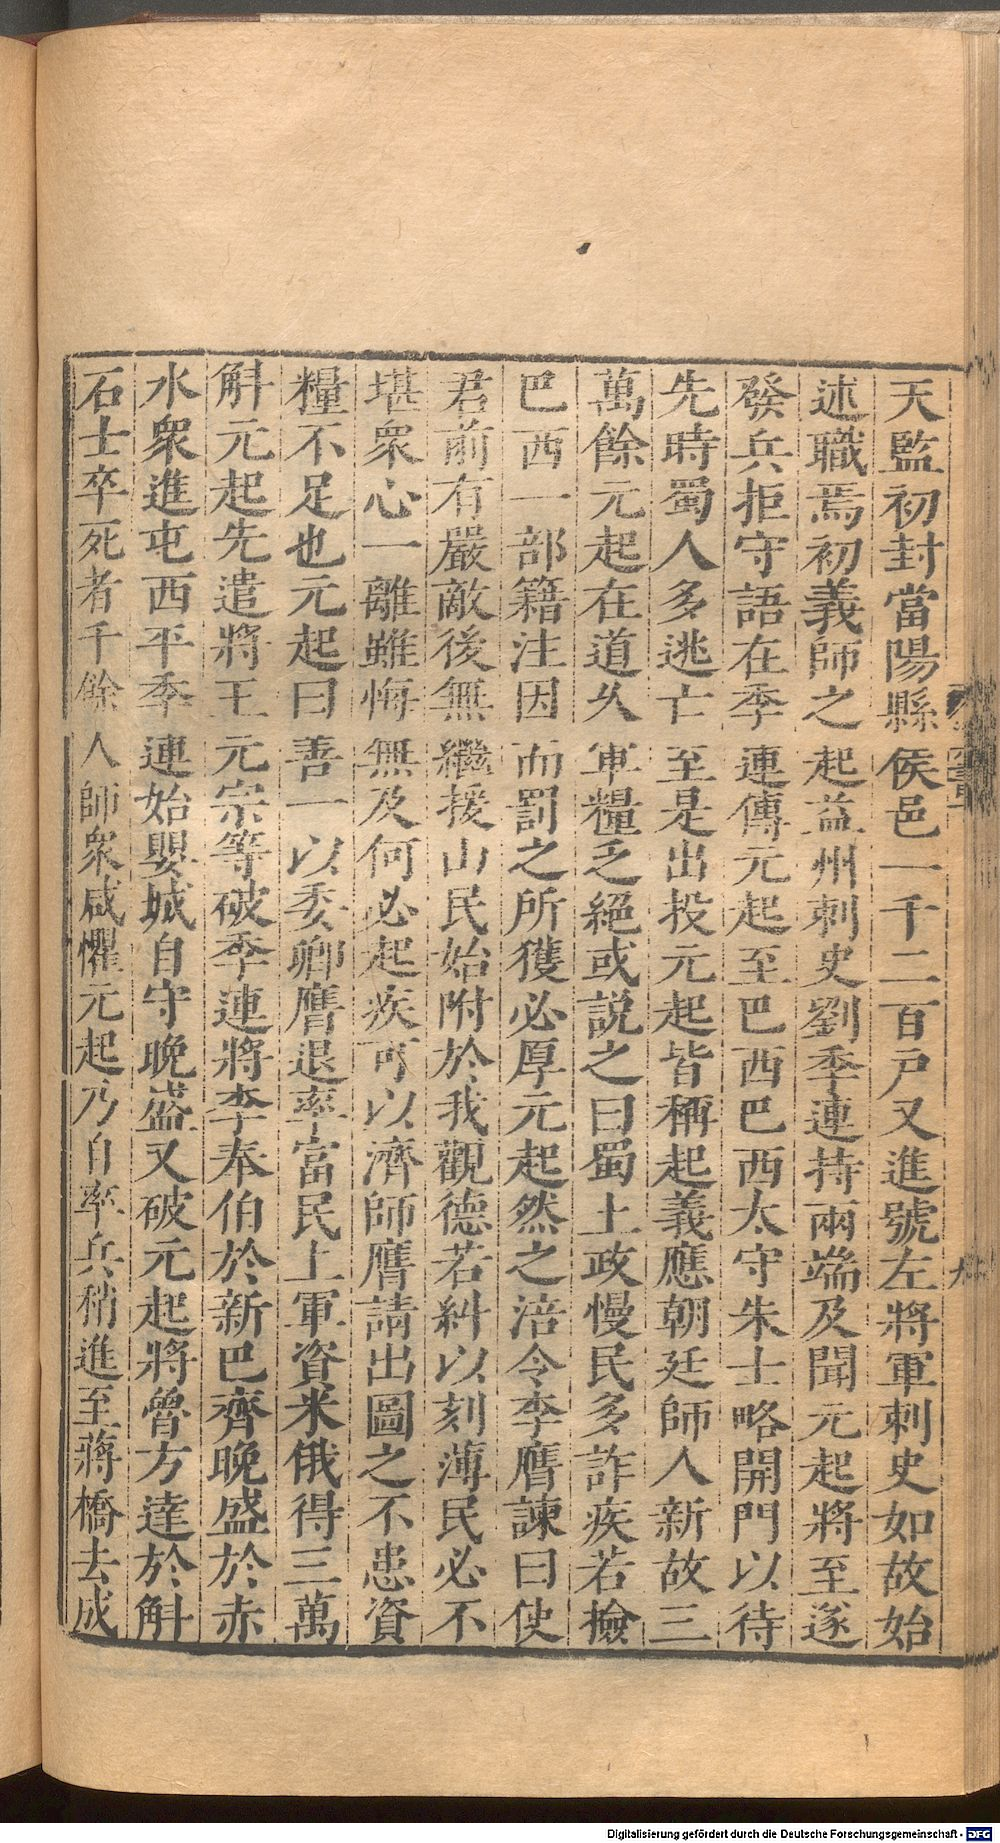 天監初封當陽縣侯邑一千二百戸又進號左將軍刺史如故始
述職焉初義師之起益州刺史劉季連持兩端及聞元起將至遂
發兵拒守語在季連傳元起至巴西巴西太守朱士略開門以待
先時蜀人多逃亡至是出投元起皆稱起義應朝廷師人新故三
萬餘元起在道久軍糧乏絕或說之曰蜀土政慢民多詐疾若撿
巴西一部籍注因而罰之所獲必厚元起然之涪令李膺諫曰使
君前有嚴敵後無繼援山民始附於我觀德若糾以刻薄民必不
堪衆心一離雖悔無及何必起疾可以濟師膺請出圖之不患資
糧不足也元起曰善一以委卿膺退率富民上軍資米俄得三萬
斛元起先遣將王元宗等破季連將李奉伯於新巴齊晚盛於赤
水衆進屯西平季連始嬰城自守晚盛又破元起將魯方達於斛
石士卒死者千餘人師衆咸懼元起乃自率兵稍進至蔣橋去成
Digitalisierung gefördert durch die Deutsche Forschungsgemeinschaft - DFG